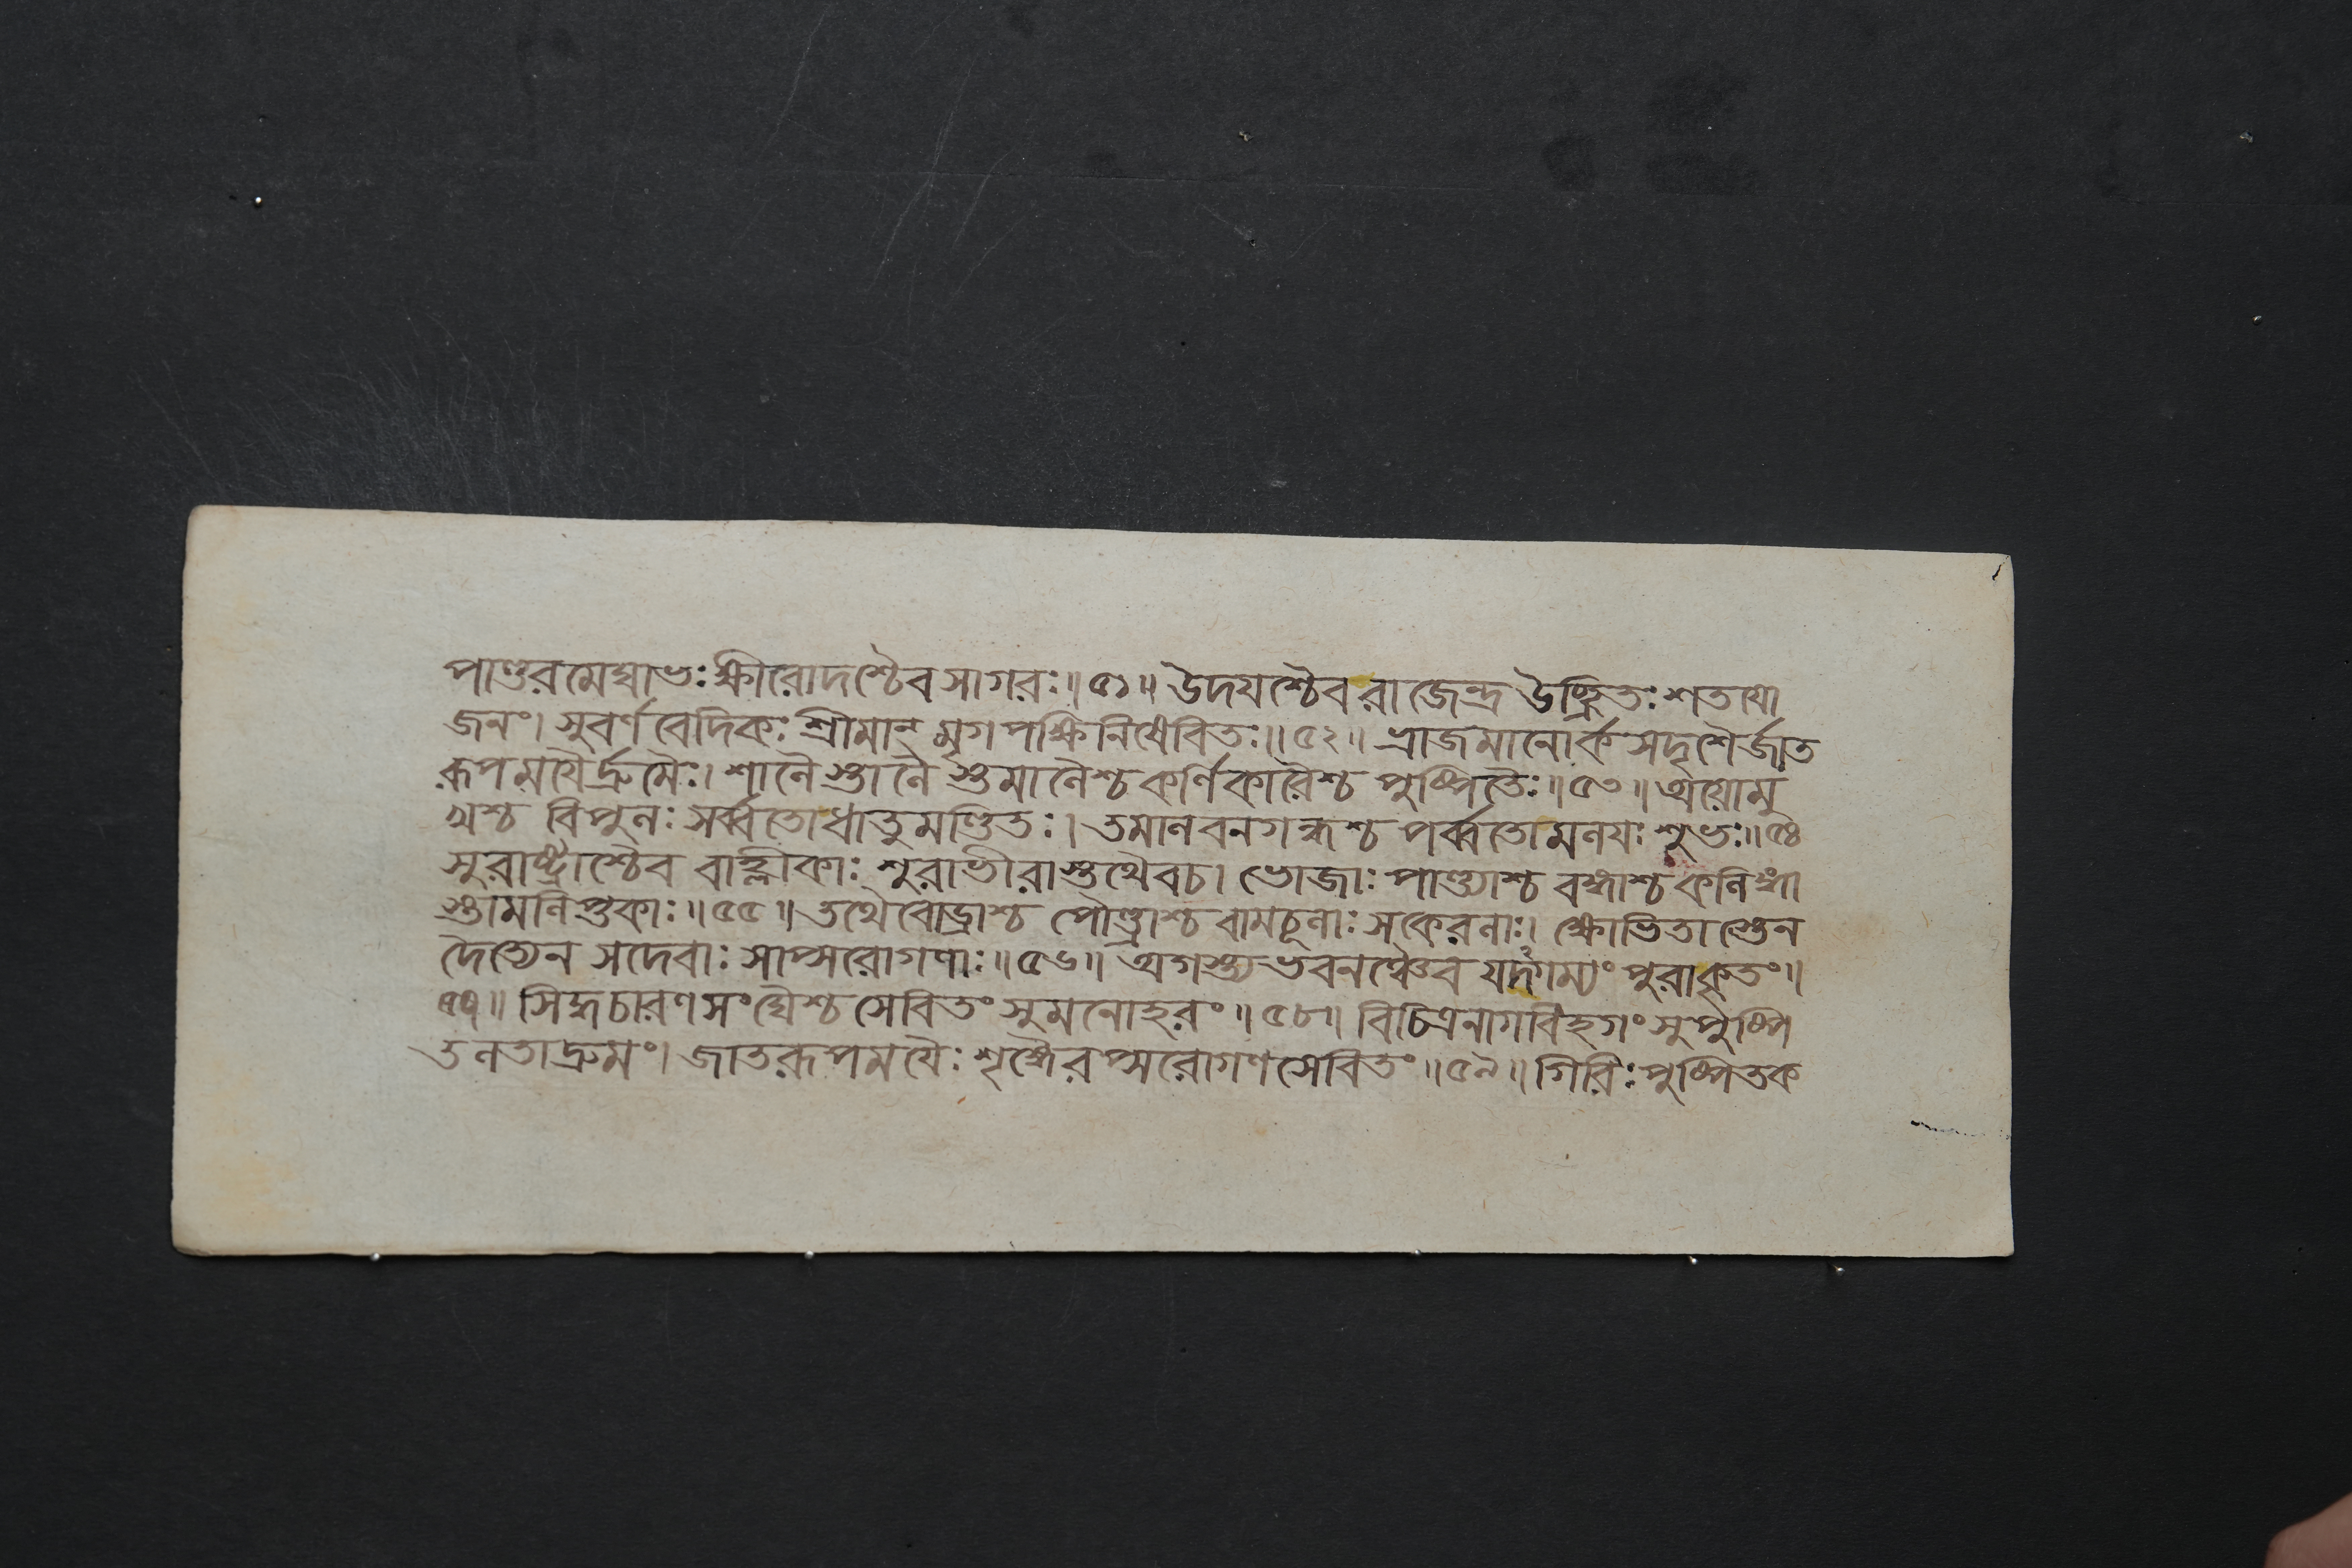 পাণ্ডরমেঘাভঃ ক্ষীরোদশ্চৈব সাগরঃ॥৫১॥ উদযশ্চৈব রাজেন্দ্র উচ্ছ্রিতঃ শতযো
জনং। সুবর্ণবেদিকঃ শ্রীমান্ মৃগপক্ষিনিষেবিতঃ॥৫২॥ ভ্রাজমানোর্ক সদৃশৈর্জাত
রূপমযৈর্দ্রুমৈঃ। শানৈস্তানৈস্তমানৈশ্চ কর্ণিকারৈশ্চ পুষ্পিতৈঃ॥৫৩॥ অয়োমু
খশ্চ বিপুনঃ সর্ব্বতোধাতুমণ্ডিতঃ। তমানবনগন্ধশ্চ পর্ব্বতোমনযঃ শুভঃ॥৫৪
সুরাষ্ট্রাশ্চৈব বাহ্লীকাঃ শুরাভীরাস্তথৈবচ। ভোজাঃ পাণ্ড্যাশ্চ বঙ্গাশ্চ কনিঙ্গা
স্তামনিপ্তকাঃ॥৫৫॥ তথৈবোড্রাশ্চ পৌণ্ড্রাশ্চ বামচূনাঃ সকেরনাঃ। ক্ষোভিতাস্তেন
দৈত্যেন সদেবাঃ সাপ্সরোগণাঃ॥৫৬॥ অগস্ত্যভবনঞ্চৈব যদগম্যং পুরাকৃতং॥
৫৭॥ সিদ্ধচারণসংঘৈশ্চ সেবিতং সুমনোহরং॥৫৮॥ বিচিত্রনাগবিহগং সুপুষ্পি
তনতাদ্রুমং। জাতরূপমযৈঃ শৃঙ্গৈরপ্সরোগণসেবিতং॥৫৯॥ গিরিঃ পুষ্পিতক